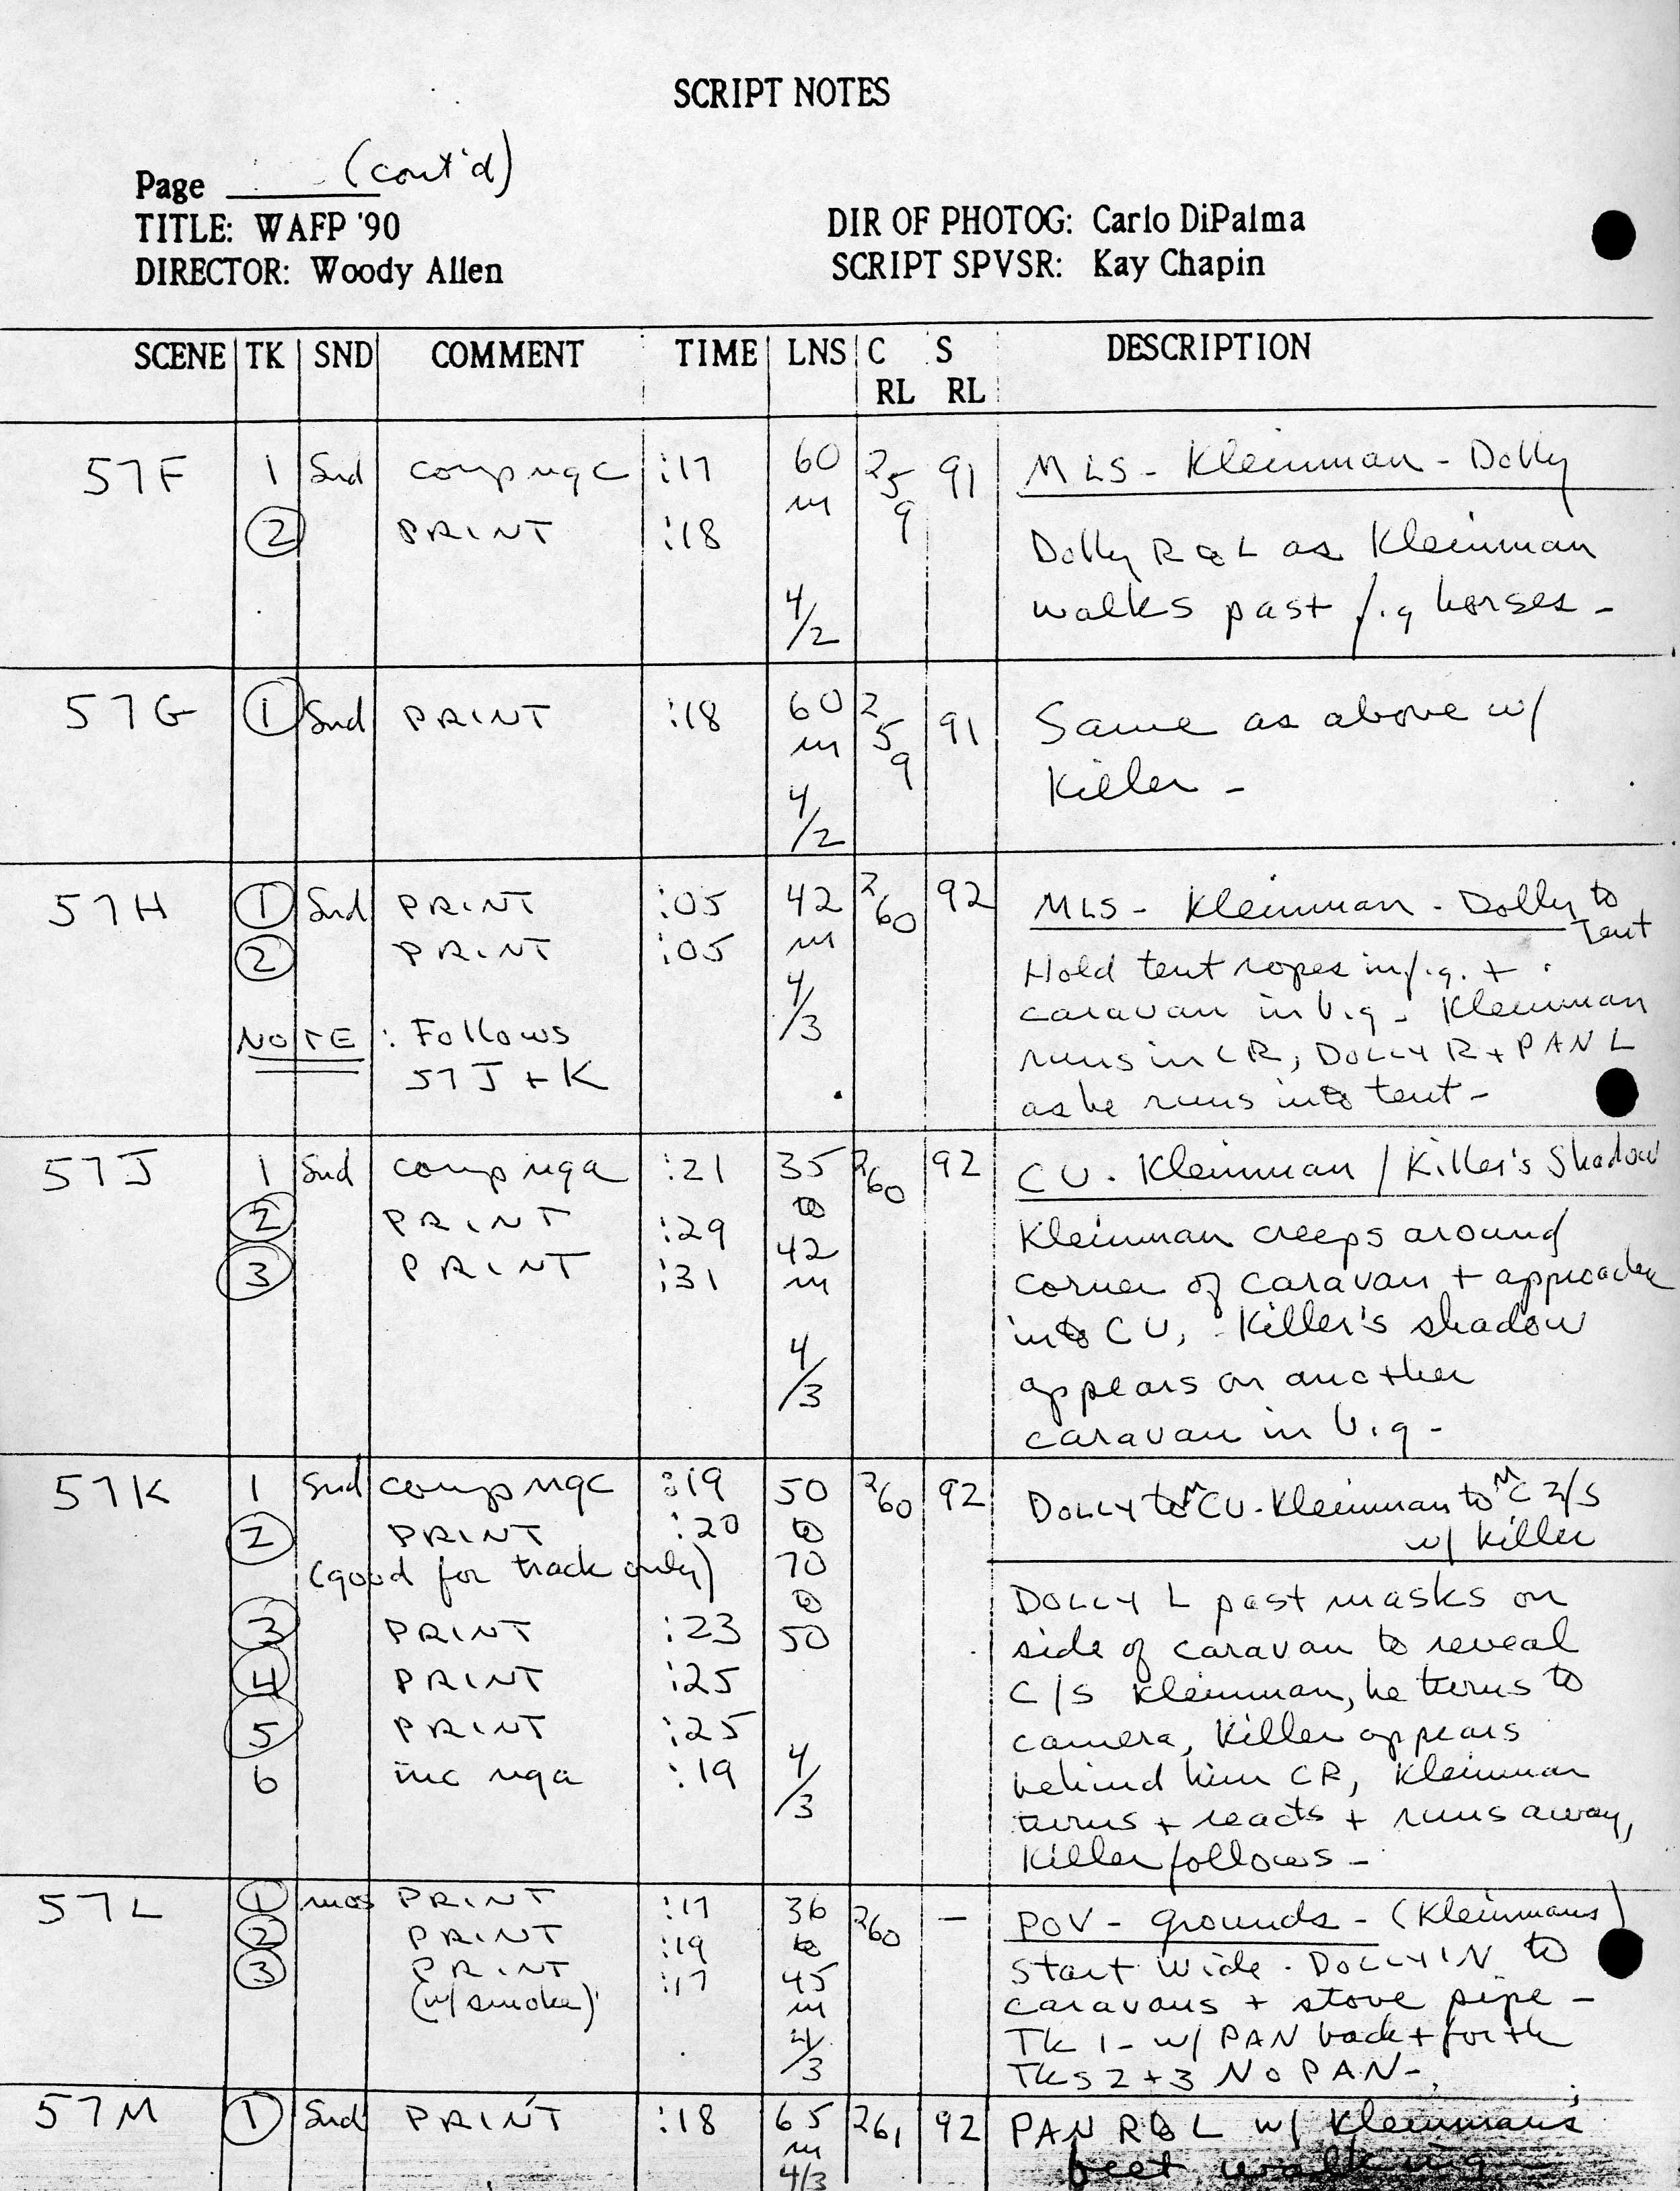 SCRIPT NOTES
Page (cont'd)
TITLE: WAFP '90
DIRECTOR: Woody Allen
DIR OF PHOTOG: Carlo DiPalma
SCRIPT SPVSR: Kay Chapin
SCENE TK SND COMMENT TIME LNS C RL S RL DESCRIPTION
57F 1 Snd comp ngc :17 60 m 259 91 MLS - Kleinman - Dolly
2 PRINT :18
4/2
Dolly R to L as Kleinman
walks past f.g horses -
57G 1 Snd PRINT :18 60 m 259 91 Same as above w/
4/2
Killer -
57H 1 Snd PRINT :05 42 m 260 92 MLS - Kleinman - Dolly to Tent
2 PRINT :05
4/3
NOTE: Follows
57J + K
Hold tent ropes in f.g. +
caravan in b.g - Kleinman
runs in CR, DOLLY R + PAN L
as he runs into tent -
57J 1 Snd comp nga :21 35 to 42 m 260 92 CU. Kleinman / Killer's Shadow
2 PRINT :29
3 PRINT :31
4/3
Kleinman creeps around
corner of caravan + approaches
into CU, Killer's shadow
appears on another
caravan in b.g -
57K 1 Snd comp ngc :19 50 to 70 to 50 260 92 DOLLY to MCU - Kleinman to MC 2/S
w/ Killer
2 PRINT :20
(good for track only)
3 PRINT :23
4 PRINT :25
5 PRINT :25
6 inc nga :19
4/3
DOLLY L past masks on
side of caravan to reveal
C/S Kleinman, he turns to
camera, Killer appears
behind him CR, Kleinman
turns + reacts + runs away,
Killer follows -
57L 1 mos PRINT :17 36 to 45 m 260 - POV - grounds - (Kleinmans)
2 PRINT :19
3 PRINT :17
(w/ smoke)
4/3
Start Wide - DOLLY IN to
caravans + stove pipe -
TK 1 - w/ PAN back + forth
TKs 2 + 3 NO PAN -
57M 1 Snd PRINT :18 65 m 261 92 PAN R to L w/ Kleinman's
4/3
feet walking -